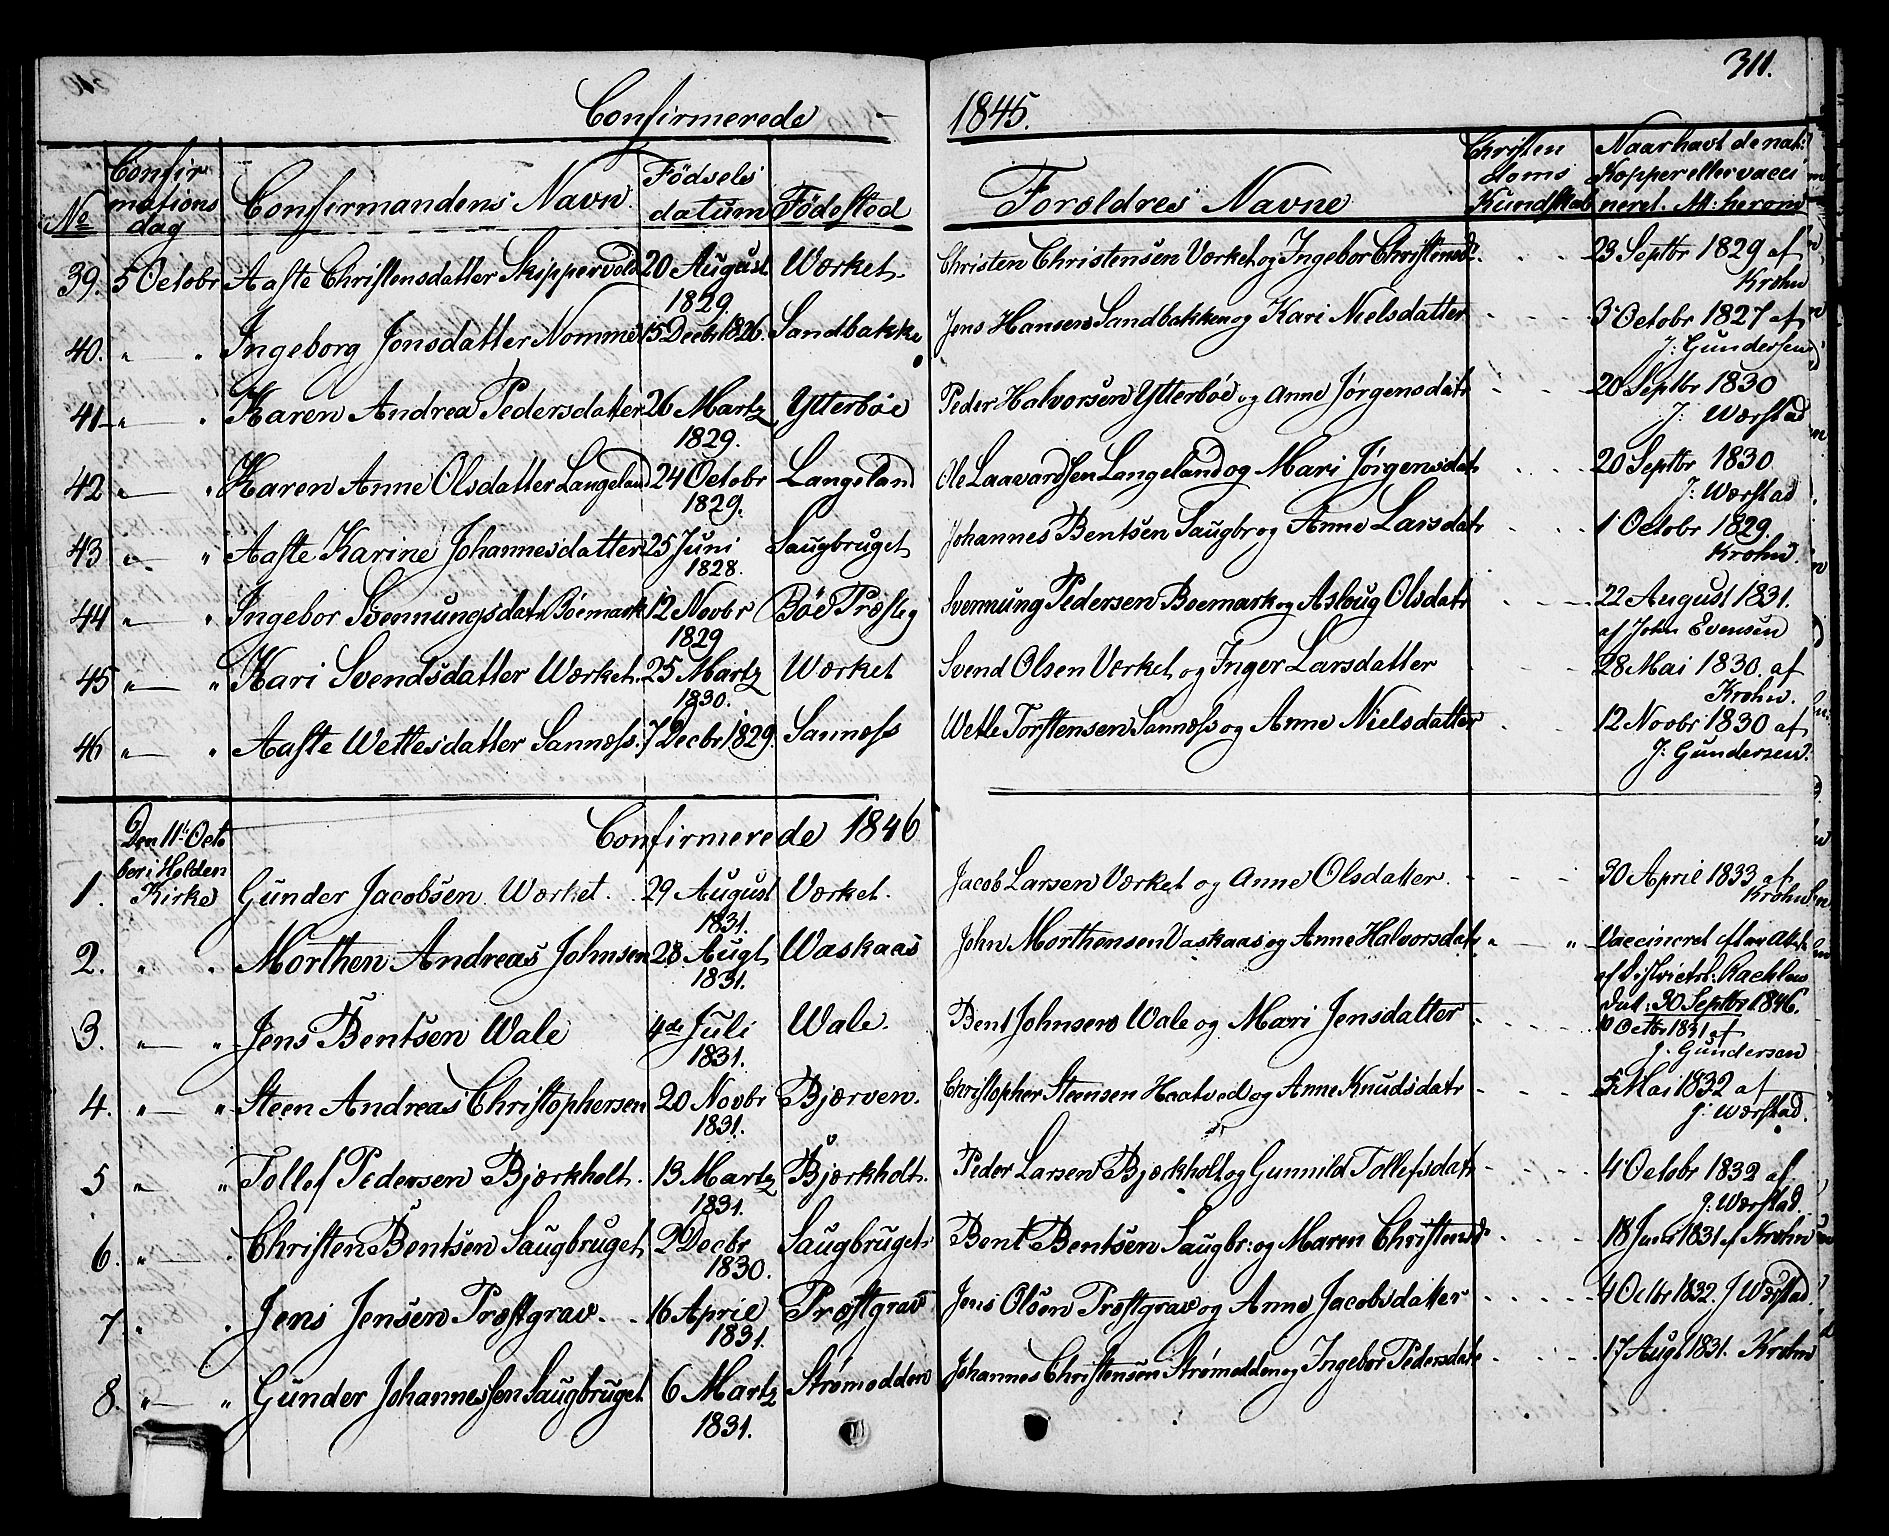 311.
Confirmerede 1845.
No
Confirmations dag
Confirmandens Navn.
Fødsels datum
Födested
Foroldres Navne
Christen doms Kundskab
Naar havt de nat: Kopper eller vacci neret. At: herom
39. 5 Octobr Aaste Christensdatter Skippervold 20 August 1829. Wærket. Christen Christensen Værket og Ingebor Christensd. 23 Septbr 1829 af Krohn
40. " " Ingeborg Jonsdatter Nomme 15 Decbr 1826. Sandbakke Jens Hansen Sandbakken og Kari Nielsdatter 3 Octobr 1827 af J: Gundersen
41 " " Karen Andrea Pedersdatter 26 Martz 1829. Ytterböe Peder Halvorsen Ytterböe og Anne Jørgensdatr 20 Septbr 1830 J: Wærstad
42 " " Karen Anne Olsdatter Langeland 24 Octobr 1829. Langeland Ole Laavardsen Langeland og Mari Jørgensdat. 20 Septbr 1830 J: Wærstad
43 " " Aaste Karine Johannesdatter 25 Juni 1828. Saugbruget Johannes Bentsen Saugbr og Anne Larsdatr 1 Octobr 1829. Krohn.
44 " " Ingebor Svennungsdatr Böemark 12 Novbr 1829 Böe Præsteg Svennung Pedersen Boemark og Aslaug Olsdatr 22 August 1831. af John Evensen
45 " " Kari Svendsdatter Wærket. 25 Martz 1830. Wærket Svend Olsen Værket og Inger Larsdatter 28 Mai 1830. af Krohn.
46 " " Aaste Wettesdatter Sannæss. 7 Decbr 1829. Sannæss Wetle Torstensen Sannæss og Anne Nielsdatter 12 Novbr 1830 af J: Gundersen.
Confirmerede 1846
Den 11te Octo ber i Holden Kirke
1. Gunder Jacobsen Wærket. 29 August 1831. Værket. Jacob Larsen Værket og Anne Olsdatter. 30 April 1833 af Krohn
2. " " Morthen Andreas Johnsen 28 Augt 1831. Waskaas John Morthensen Vaskaas og Anne Halvorsdatr " " Vaccineret efter Att. af Districtsl: dat: 30 Septbr 1846.
3. " " Jens Bentsen Wale 4de Juli 1831. Wale. Bent Johnsen Wale og Mari Jensdatter 10 Octbr 1831 af J. Gundersen
4. " " Steen Andreas Christophersen 20 Novbr 1831. Bjærven. Christopher Steensen Haatved og Anne Knudsdatr 5 Mai 1832 af J: Wærstad.
5 " " Tollef Pedersen Bjærkholt. 13 Martz 1831. Bjærkholt. Peder Larsen Bjærkholt og Gunnild Tollefsdatr 4 Octobr 1832 af J: Wærstad.
6. " " Christen Bentsen Saugbruget 2 Decbr 1830. Saugbruget Bent Bentsen Saugbr: og Maren Christensd. 18 1831 af Krohn
7 " " Jens Jensen Præstgrav. 16 April 1831. Præstgrav Jens Olsen Præstgrav og Anne Jacobsdatter 4 Octbr 1832. J Wærstad
8. " " Gunder Johannessen Saugbruget. 6 Martz 1831. Strømodden Johannes Christensen Strømodden og Ingebor Pedersdatr 17 Augt 1831. Krohn